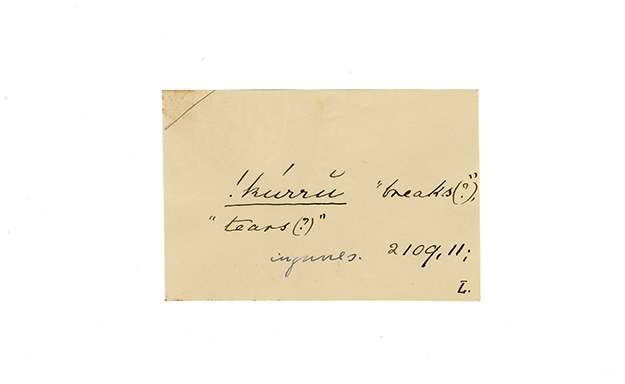 !kúrrŭ "breaks(?)",
"tears(?)"
injures. 2109, 11;
L.